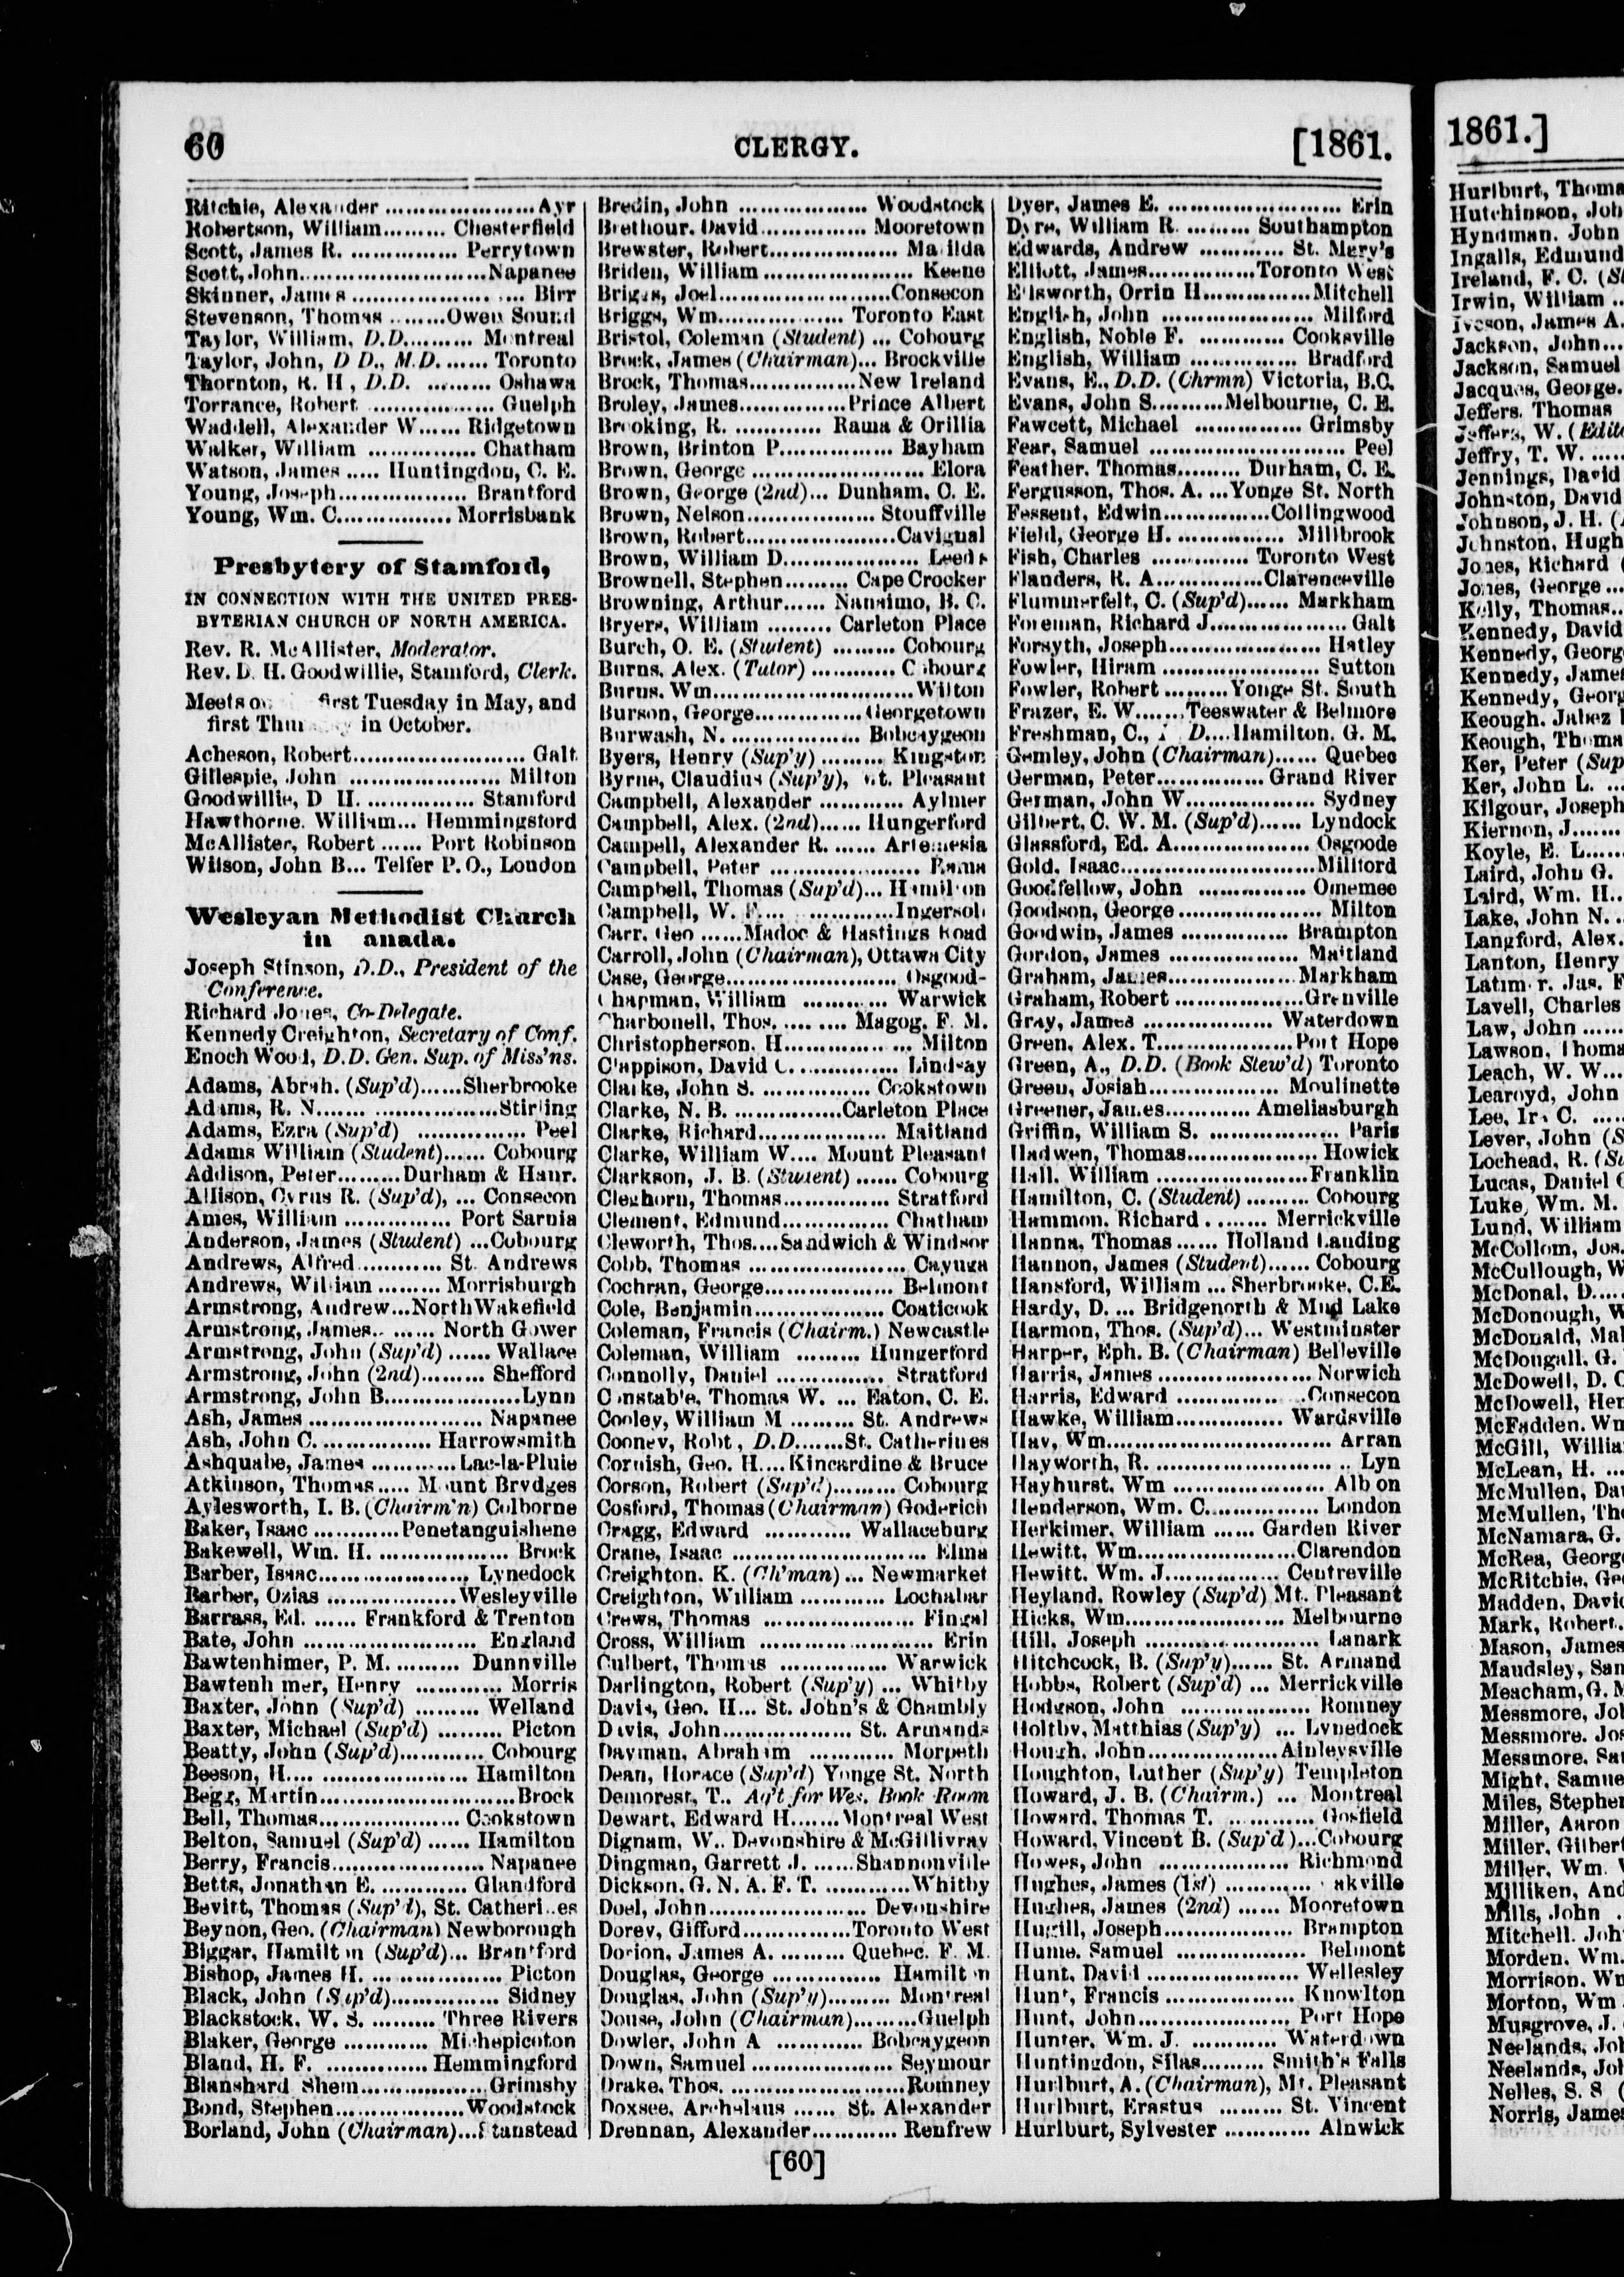 60
CLERGY.
[1861.
Ritchie, Alexander ..................... Ayr
Robertson, William......... Chesterfield
Scott, James R. ............... Perrytown
Scott, John..........................Napanee
Skinner, James ........................ Birr
Stevenson, Thomas ........Owen Sound
Taylor, William, D.D.......... Montreal
Taylor, John, D D., M.D. ...... Toronto
Thornton, R. H, D.D. ......... Oshawa
Torrance, Robert .................. Guelph
Waddell, Alexander W...... Ridgetown
Walker, William ............... Chatham
Watson, James ..... Huntingdon, C. E.
Young, Joseph.................. Brantford
Young, Wm. C............... Morrisbank
Presbytery of Stamford,
IN CONNECTION WITH THE UNITED PRES-
BYTERIAN CHURCH OF NORTH AMERICA.
Rev. R. McAllister, Moderator.
Rev. D. H. Goodwillie, Stamford, Clerk.
Meets on first Tuesday in May, and
first in October.
Acheson, Robert........................ Galt
Gillespie, John ..................... Milton
Goodwillie, D H. ............... Stamford
Hawthorne. William... Hemmingford
McAllister, Robert ...... Port Robinson
Wilson, John B... Telfer P.O., London
Wesleyan Methodist Church
in anada.
Joseph Stinson, D.D., President of the
Conference.
Richard Jones, Co-Delegate.
Kennedy Creighton, Secretary of Conf.
Enoch Wood, D.D. Gen. Sup. of Miss'ns.
Adams, Abrah. (Sup'd)......Sherbrooke
Adams, R. N........................Stirling
Adams, Ezra (Sup'd) ............... Peel
Adams William (Student)...... Cobourg
Addison, Peter.........Durham & Hanr.
Allison, Cyrus R. (Sup'd), ... Consecon
Ames, William ............... Port Sarnia
Anderson, James (Student) ...Cobourg
Andrews, Alfred............ St. Andrews
Andrews, William ......... Morrisburgh
Armstrong, Andrew...North Wakefield
Armstrong, James.. ...... North Gower
Armstrong, John (Sup'd) ...... Wallace
Armstrong, John (2nd)......... Shefford
Armstrong, John B...................Lynn
Ash, James ........................ Napanee
Ash, John C. ............... Harrowsmith
Ashquabe, James ............Lac-la-Pluie
Atkinson, Thomas..... Mount Brydges
Aylesworth, I. B. (Chairm'n) Colborne
Baker, Isaac ............Penetanguishene
Bakewell, Wm. H. .................. Brock
Barber, Isaac..................... Lynedock
Barber, Ozias ..................Wesleyville
Barrass, Ed. ...... Frankford & Trenton
Bate, John ........................ England
Bawtenhimer, P. M. ......... Dunnville
Bawtenh mer, Henry ............ Morris
Baxter, John (Sup'd) ......... Welland
Baxter, Michael (Sup'd) ......... Picton
Beatty, John (Sup'd)............ Cobourg
Beeson, H.... ..................... Hamilton
Begg, Martin...........................Brock
Bell, Thomas.................... Cookstown
Belton, Samuel (Sup'd) ...... Hamilton
Berry, Francis..................... Napanee
Betts, Jonathan E. ............ Glandford
Bevitt, Thomas (Sup'd), St. Catheri..es
Beynon, Geo. (Chairman) Newborough
Biggar, Hamilton (Sup'd)... Brantford
Bishop, James H. .................. Picton
Black, John (Sup'd)............... Sidney
Blackstock. W. S. ......... Three Rivers
Blaker, George ............ Michepicoton
Bland, H. F. .............. Hemmingford
Blanshard Shem..................Grimsby
Bond, Stephen..................Woodstock
Borland, John (Chairman)...Stanstead
Bredin, John .................. Woodstock
Brethour. David............... Mooretown
Brewster, Robert.................. Matilda
Briden, William ..................... Keene
Briggs, Joel........................Consecon
Briggs, Wm.................. Toronto East
Bristol, Coleman (Student) ... Cobourg
Brock, James (Chairman)... Brockville
Brock, Thomas...............New Ireland
Broley, James...............Prince Albert
Brooking, R. ............ Rama & Orillia
Brown, Brinton P................ Bayham
Brown, George ........................ Elora
Brown, George (2nd)... Dunham. C. E.
Brown, Nelson.................. Stouffville
Brown, Robert.....................Cavignal
Brown, William D................... Leeds
Brownell, Stephen......... Cape Crocker
Browning, Arthur...... Nanaimo, B. C.
Bryers, William ......... Carleton Place
Burch, O. E. (Student) ......... Cobourg
Burns, Alex. (Tutor) ............ Cobourg
Burns, Wm............................Wilton
Burson, George...............Georgetown
Burwash, N. .................. Bobcaygeon
Byers, Henry (Sup'y) ......... Kingston
Byrne, Claudius (Sup'y), t. Pleasant
Campbell, Alexander ............ Aylmer
Campbell, Alex. (2nd)...... Hungerford
Campell, Alexander R. ...... Artemesia
Campbell, Peter ..................... Rama
Campbell, Thomas (Sup'd)... Hamilton
Campbell, W. F.... ............Ingersoll
Carr, Geo ......Madoc & Hastings Road
Carroll, John (Chairman), Ottawa City
Case, George......................... Osgood-
Chapman, William ............ Warwick
Charbonell, Thos. ......... Magog, F. M.
Christopherson, H.................. Milton
Clappison, David C. .............. Lindsay
Clarke, John S. ............... Cookstown
Clarke, N. B. ...............Carleton Place
Clarke, Richard.................. Maitland
Clarke, William W.... Mount Pleasant
Clarkson, J. B. (Student) ...... Cobourg
Cleghorn, Thomas............... Stratford
Clement, Edmund............... Chatham
Cleworth, Thos....Sandwich & Windsor
Cobb, Thomas ...................... Cayuga
Cochran, George.................. Belmont
Cole, Benjamin.................. Coaticook
Coleman, Francis (Chairm.) Newcastle
Coleman, William ......... Hungerford
Connolly, Daniel ............... Stratford
Constable, Thomas W. ... Eaton, C. E.
Cooley, William M ......... St. Andrews
Cooney, Robt, D.D.......St. Catherines
Cornish, Geo. H....Kincardine & Bruce
Corson, Robert (Sup'd)......... Cobourg
Cosford, Thomas (Chairman) Goderich
Cragg, Edward ............ Wallaceburg
Crane, Isaac ........................... Elma
Creighton. K. (Ch'man)... Newmarket
Creighton, William ............ Lochabar
Crews, Thomas ..................... Fingal
Cross, William ........................ Erin
Culbert, Thomas ............... Warwick
Darlington, Robert (Sup'y) ... Whitby
Davis, Geo. H... St. John's & Chambly
Davis, John.................. St. Armands
Dayman, Abraham ............ Morpeth
Dean, Horace (Sup'd) Yonge St. North
Demorest, T.. Ag't for Wes. Book Room
Dewart, Edward H.......Montreal West
Dignam, W.. Devonshire & McGillivray
Dingman, Garrett J. ......Shannonville
Dickson, G. N. A. F. T. ............Whitby
Doel, John....................... Devonshire
Dorey, Gifford...............Toronto West
Dorion, James A. ......... Quebec. F. M.
Douglas, George ............... Hamilton
Douglas, John (Sup'y)......... Montreal
Douse, John (Chairman).........Guelph
Dowler, John A ............ Bobcaygeon
Down, Samuel .................... Seymour
Drake, Thos. .........................Romney
Doxsee, Archelaus ...... St. Alexander
Drennan, Alexander............ Renfrew
Dyer, James E. ........................ Erin
Dyre, William R. ......... Southampton
Edwards, Andrew ............ St. Mary's
Elliott, James...............Toronto West
Ellsworth, Orrin H...............Mitchell
English, John ..................... Milford
English, Noble F. ............ Cooksville
English, William ............... Bradford
Evans, E., D.D. (Chrmn) Victoria, B.C.
Evans, John S..........Melbourne, C. E.
Fawcett, Michael ............... Grimsby
Fear, Samuel ............................ Peel
Feather. Thomas......... Durham, C. E.
Fergusson, Thos. A. ...Yonge St. North
Fessent, Edwin...............Collingwood
Field, George H. ............... Millbrook
Fish, Charles ............... Toronto West
Flanders, R. A...............Clarenceville
Flummerfelt, C. (Sup'd)...... Markham
Foreman, Richard J................... Galt
Forsyth, Joseph..................... Hatley
Fowler, Hiram ....................... Sutton
Fowler, Robert .........Yonge St. South
Frazer, E. W.......Teeswater & Belmore
Freshman, C., D....Hamilton, G. M.
Gemley, John (Chairman)...... Quebec
German, Peter............... Grand River
German, John W.................. Sydney
Gilbert, C. W. M. (Sup'd)...... Lyndock
Glassford, Ed. A................... Osgoode
Gold, Isaac...........................Millford
Goodfellow, John ............... Omemee
Goodson, George..................... Milton
Goodwin, James ............... Brampton
Gordon, James .................. Maitland
Graham, James..................Markham
Graham, Robert ..................Grenville
Gray, James .................. Waterdown
Green, Alex. T...................Port Hope
Green, A., D.D. (Book Stew'd) Toronto
Green, Josiah.................... Moulinette
Greener, James............ Ameliasburgh
Griffin, William S. .................. Paris
Hadwen, Thomas.................. Howick
Hall, William .....................Franklin
Hamilton, C. (Student) ......... Cobourg
Hammon. Richard ......... Merrickville
Hanna, Thomas ...... Holland Landing
Hannon, James (Student)...... Cobourg
Hansford, William ... Sherbrooke, C.E.
Hardy, D. ... Bridgenorth & Mud Lake
Harmon, Thos. (Sup'd)... Westminster
Harper, Eph. B. (Chairman) Belleville
Harris, James ..................... Norwich
Harris, Edward ..................Consecon
Hawke, William............... Wardsville
Hay, Wm............................... Arran
Hayworth, R. ........................... Lyn
Hayhurst, Wm ..................... Albion
Henderson, Wm. C................ London
Herkimer, William ...... Garden River
Hewitt, Wm.......................Clarendon
Hewitt, Wm. J................ Centreville
Heyland, Rowley (Sup'd) Mt. Pleasant
Hicks, Wm....................... Melbourne
Hill, Joseph ........................ Lanark
Hitchcock, B. (Sup'y)...... St. Armand
Hobbs, Robert (Sup'd) ... Merrickville
Hodgson, John .................. Romney
Holtby, Matthias (Sup'y) ... Lynedock
Hough, John..................Ainleysville
Houghton, Luther (Sup'y) Templeton
Howard, J. B. (Chairm.) ... Montreal
Howard, Thomas T. ............ Gosfield
Howard, Vincent B. (Sup'd)...Cobourg
Howes, John .................. Richmond
Hughes, James (1st) ............ akville
Hughes, James (2nd) ...... Mooretown
Hugill, Joseph.................... Brampton
Hume, Samuel .................. Belmont
Hunt, David ..................... Wellesley
Hunt, Francis .................. Knowlton
Hunt, John........................ Port Hope
Hunter, Wm. J. ............ Waterdown
Huntingdon, Silas......... Smith's Falls
Hurlburt, A. (Chairman), Mt. Pleasant
Hurlburt, Erastus ......... St. Vincent
Hurlburt, Sylvester ............ Alnwick
[60]
1861.]
Hurlburt, Thoma
Hutchinson, Joh
Hyndman. John
Ingalls, Edmund
Ireland, F. C. (S
Irwin, William ..
Iveson, James A.
Jackson, John...
Jackson, Samuel
Jacques, George.
Jeffers, Thomas
Jeffers, W. (Edit
Jeffry, T. W. .....
Jennings, David
Johnston, David
Johnson, J. H. (
Johnston, Hugh
Jones, Richard (
Jones, George ...
Kelly, Thomas..
Kennedy, David
Kennedy, Georg
Kennedy, James
Kennedy, Georg
Keough. Jabez
Keough, Thoma
Ker, Peter (Sup
Ker, John L. ...
Kilgour, Joseph
Kiernon, J.......
Koyle, E. L.....
Laird, John G.
Laird, Wm. H..
Lake, John N. .
Langford, Alex.
Lanton, Henry
Latimer, Jas. F
Lavell, Charles
Law, John ......
Lawson, Thoma
Leach, W. W...
Learoyd, John
Lee, Ira C. ....
Lever, John (S
Lochead, R. (Su
Lucas, Daniel
Luke, Wm. M.
Lund, William
McCollom, Jos.
McCullough, W
McDonal, D.....
McDonough, W
McDonald, Mal
McDougall, G.
McDowell, D. C
McDowell, Hen
McFadden. Wm
McGill, Willia
McLean, H. ...
McMullen, Da
McMullen, Th
McNamara, G.
McRea, George
McRitchie, Ge
Madden, David
Mark, Robert..
Mason, James
Maudsley, Sam
Meacham, G. M
Messmore, Jo
Messmore. Jos
Messmore. Sa
Might, Samue
Miles, Stephen
Miller, Aaron
Miller, Gilber
Miller, Wm.
Milliken, And
Mills, John .
Mitchell. Joh
Morden. Wm.
Morrison. Wm
Morton, Wm
Musgrove, J.
Neelands, Joh
Neelands, Joh
Nelles, S. S (
Norris, James